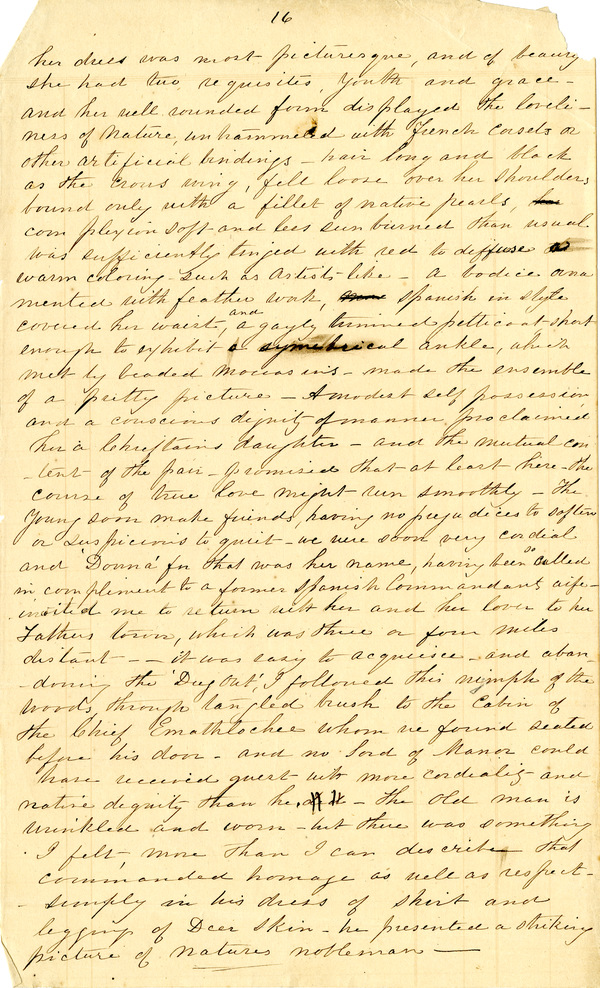 16
her dress was most picturesque, and of beauty
she had two requisites, Youth and grace -
and her well rounded form displayed the loveli-
ness of Nature, untrammeled with French corsets or
other artificial bindings - hair long and black
as the crows wing, fell loose over her shoulders
bound only with a fillet of native pearls,
complexion soft and less sunburned than usual
was sufficiently tinged with red to diffuse a
warm coloring such as artists like - a bodice orna
mented with feather work, Spanish in style
covered her waist, and a gayly trimmed petticoat short
enough to exhibit a symetrical ankle, which
met by beaded moccasins - made the ensemble
of a pretty picture - A modest self possession
and a conscious dignity of manner proclaimed
her a Chieftains daughter - and the mutual con
-tent of the pair - promised that at least here - the
course of true love might run smoothly - The
Young soon make friends, having no prejudices to soften
or suspicions to quiet - we were soon very cordial
and 'Donna' for that was her name, having been so called
in complement to a former Spanish Commandant's wife -
invited me to return with her and her lover to her
Fathers town, which was three or four miles
distant - - it was easy to acquiesce - and aban-
-doning the 'Dug Out', I followed this nymph of the
woods, through tangled brush to the Cabin of
the Chief Emathlochee whom we found seated
before his door - and no Lord of Manor could
have received guest with more cordiality and
native dignity than he. - The old man is
wrinkled and worn - but there was something
I felt more than I can describe that
commanded homage as well as respect -
simply in his dress of shirt and
legging of Deer skin - he presented a striking
picture of natures nobleman -